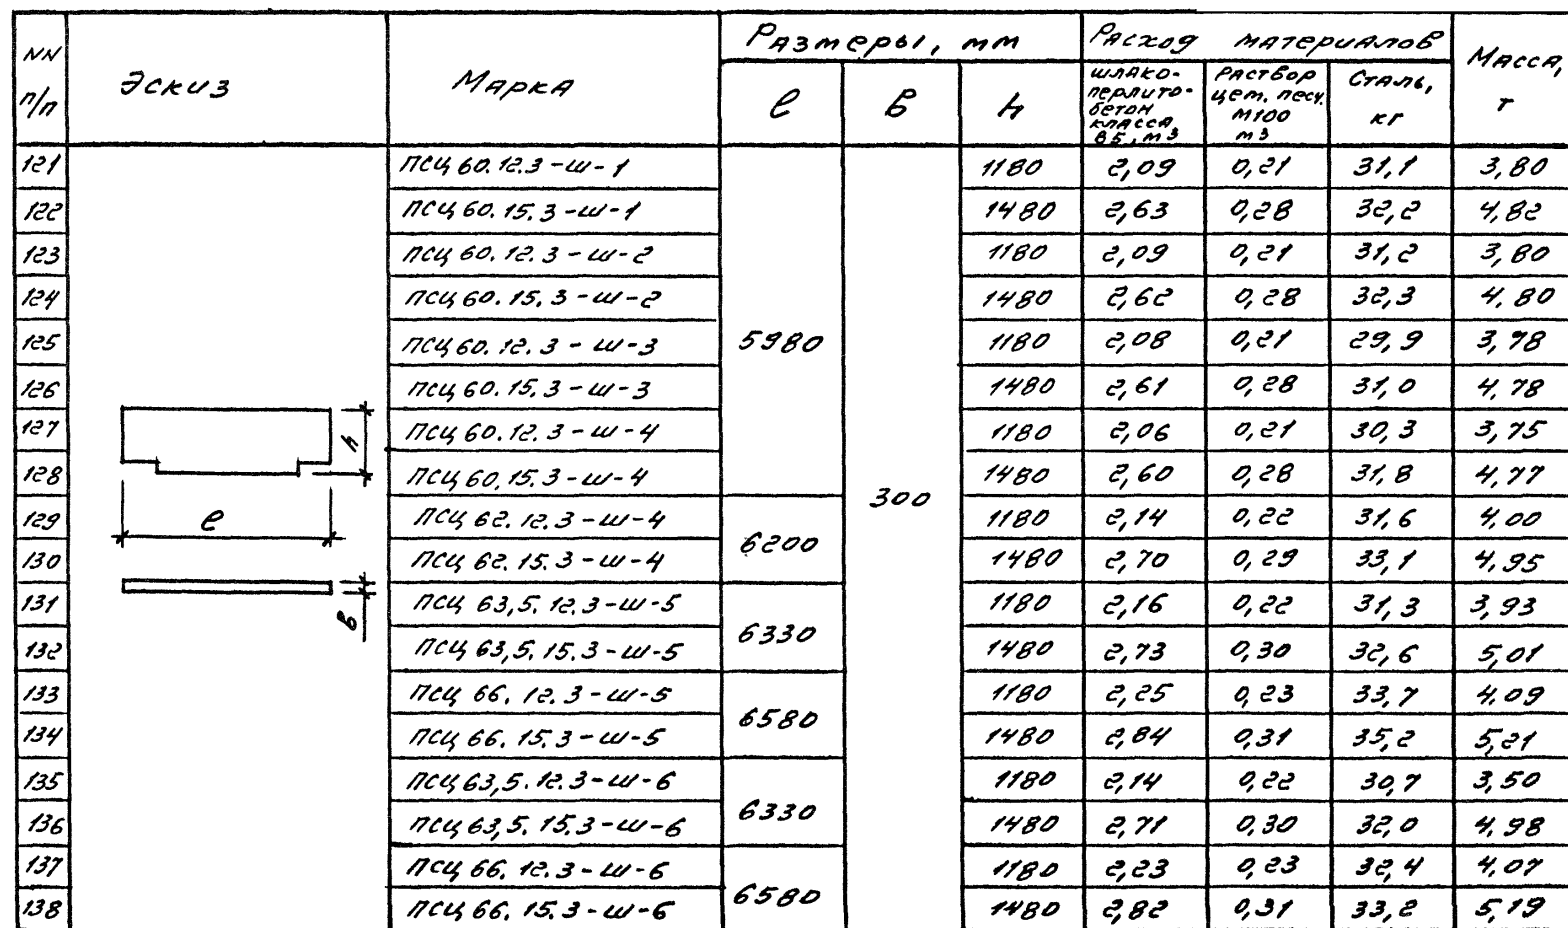 NN п/п Эскиз Марка Размеры, мм Расход материалов Масса, т
ℓ в h шлако-перлито-бетон класса В5, м3 Раствор цем. песч. М100 м3 Сталь, кг
121 ПСЦ 60.12.3-ш-1 1180 2,09 0,21 31,1 3,80
122 ПСЦ 60.15.3-ш-1 1480 2,63 0,28 32,2 4,82
123 ПСЦ 60.12.3-ш-2 1180 2,09 0,21 31,2 3,80
124 ПСЦ 60.15.3-ш-2 1480 2,62 0,28 32,3 4,80
125 ПСЦ 60.12.3-ш-3 5980 1180 2,08 0,21 29,9 3,78
126 ПСЦ 60.15.3-ш-3 1480 2,61 0,28 31,0 4,78
127 h ПСЦ 60.12.3-ш-4 1180 2,06 0,21 30,3 3,75
128 ПСЦ 60.15.3-ш-4 1480 2,60 0,28 31,8 4,77
300
129 ℓ ПСЦ 62.12.3-ш-4 1180 2,14 0,22 31,6 4,00
6200
130 ПСЦ 62.15.3-ш-4 1480 2,70 0,29 33,1 4,95
131 в ПСЦ 63,5.12.3-ш-5 1180 2,16 0,22 31,3 3,93
6330
132 ПСЦ 63,5.15.3-ш-5 1480 2,73 0,30 32,6 5,01
133 ПСЦ 66.12.3-ш-5 1180 2,25 0,23 33,7 4,09
6580
134 ПСЦ 66.15.3-ш-5 1480 2,84 0,31 35,2 5,21
135 ПСЦ 63,5.12.3-ш-6 1180 2,14 0,22 30,7 3,50
6330
136 ПСЦ 63,5.15.3-ш-6 1480 2,71 0,30 32,0 4,98
137 ПСЦ 66.12.3-ш-6 1180 2,23 0,23 32,4 4,07
6580
138 ПСЦ 66.15.3-ш-6 1480 2,82 0,31 33,2 5,19